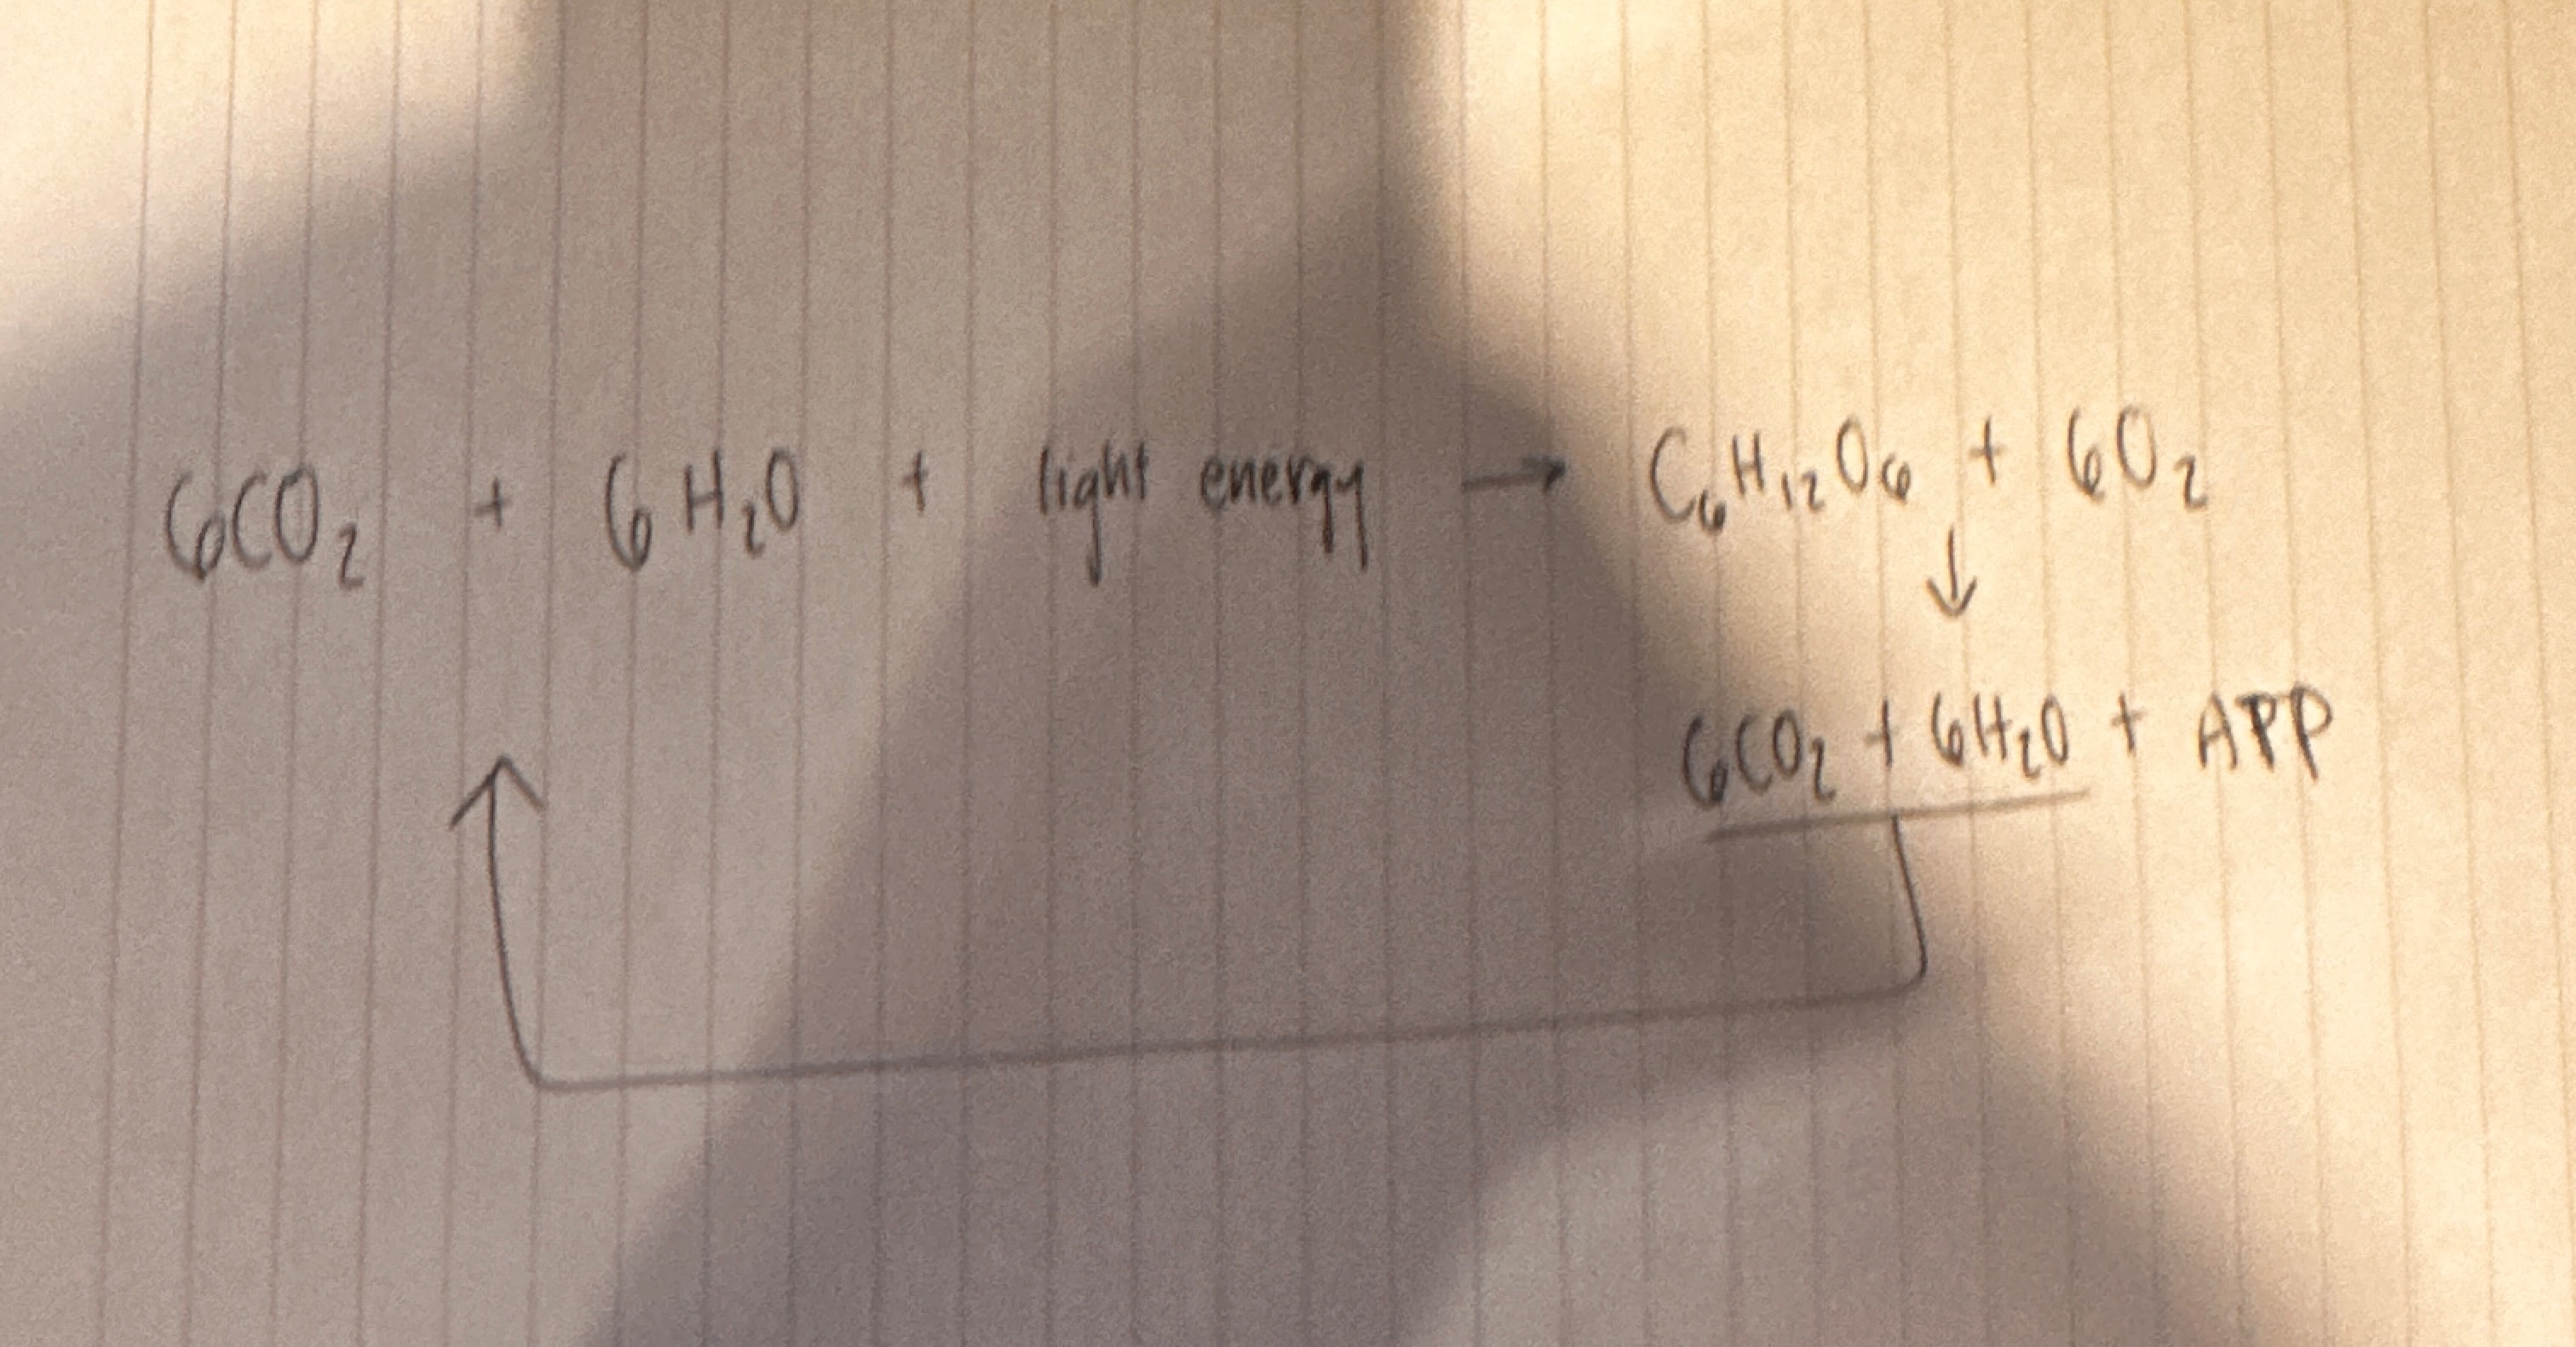 6CO₂ + 6H₂O + light energy → C₆H₁₂O₆ + 6O₂
↓
6CO₂ + 6H₂O + APP